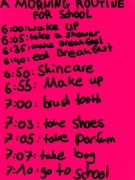 A MORNING ROUTINE
FOR SCHOOL
6:00: wake up
6:05: take a shower
6:35: make breakfast
6:40: eat Breakfast
6:50: Skincare
6:55: Make up
7:00: brush tooth
7:03: take Shoes
7:05: take parfum
7:07: take bag
7:10: go to School